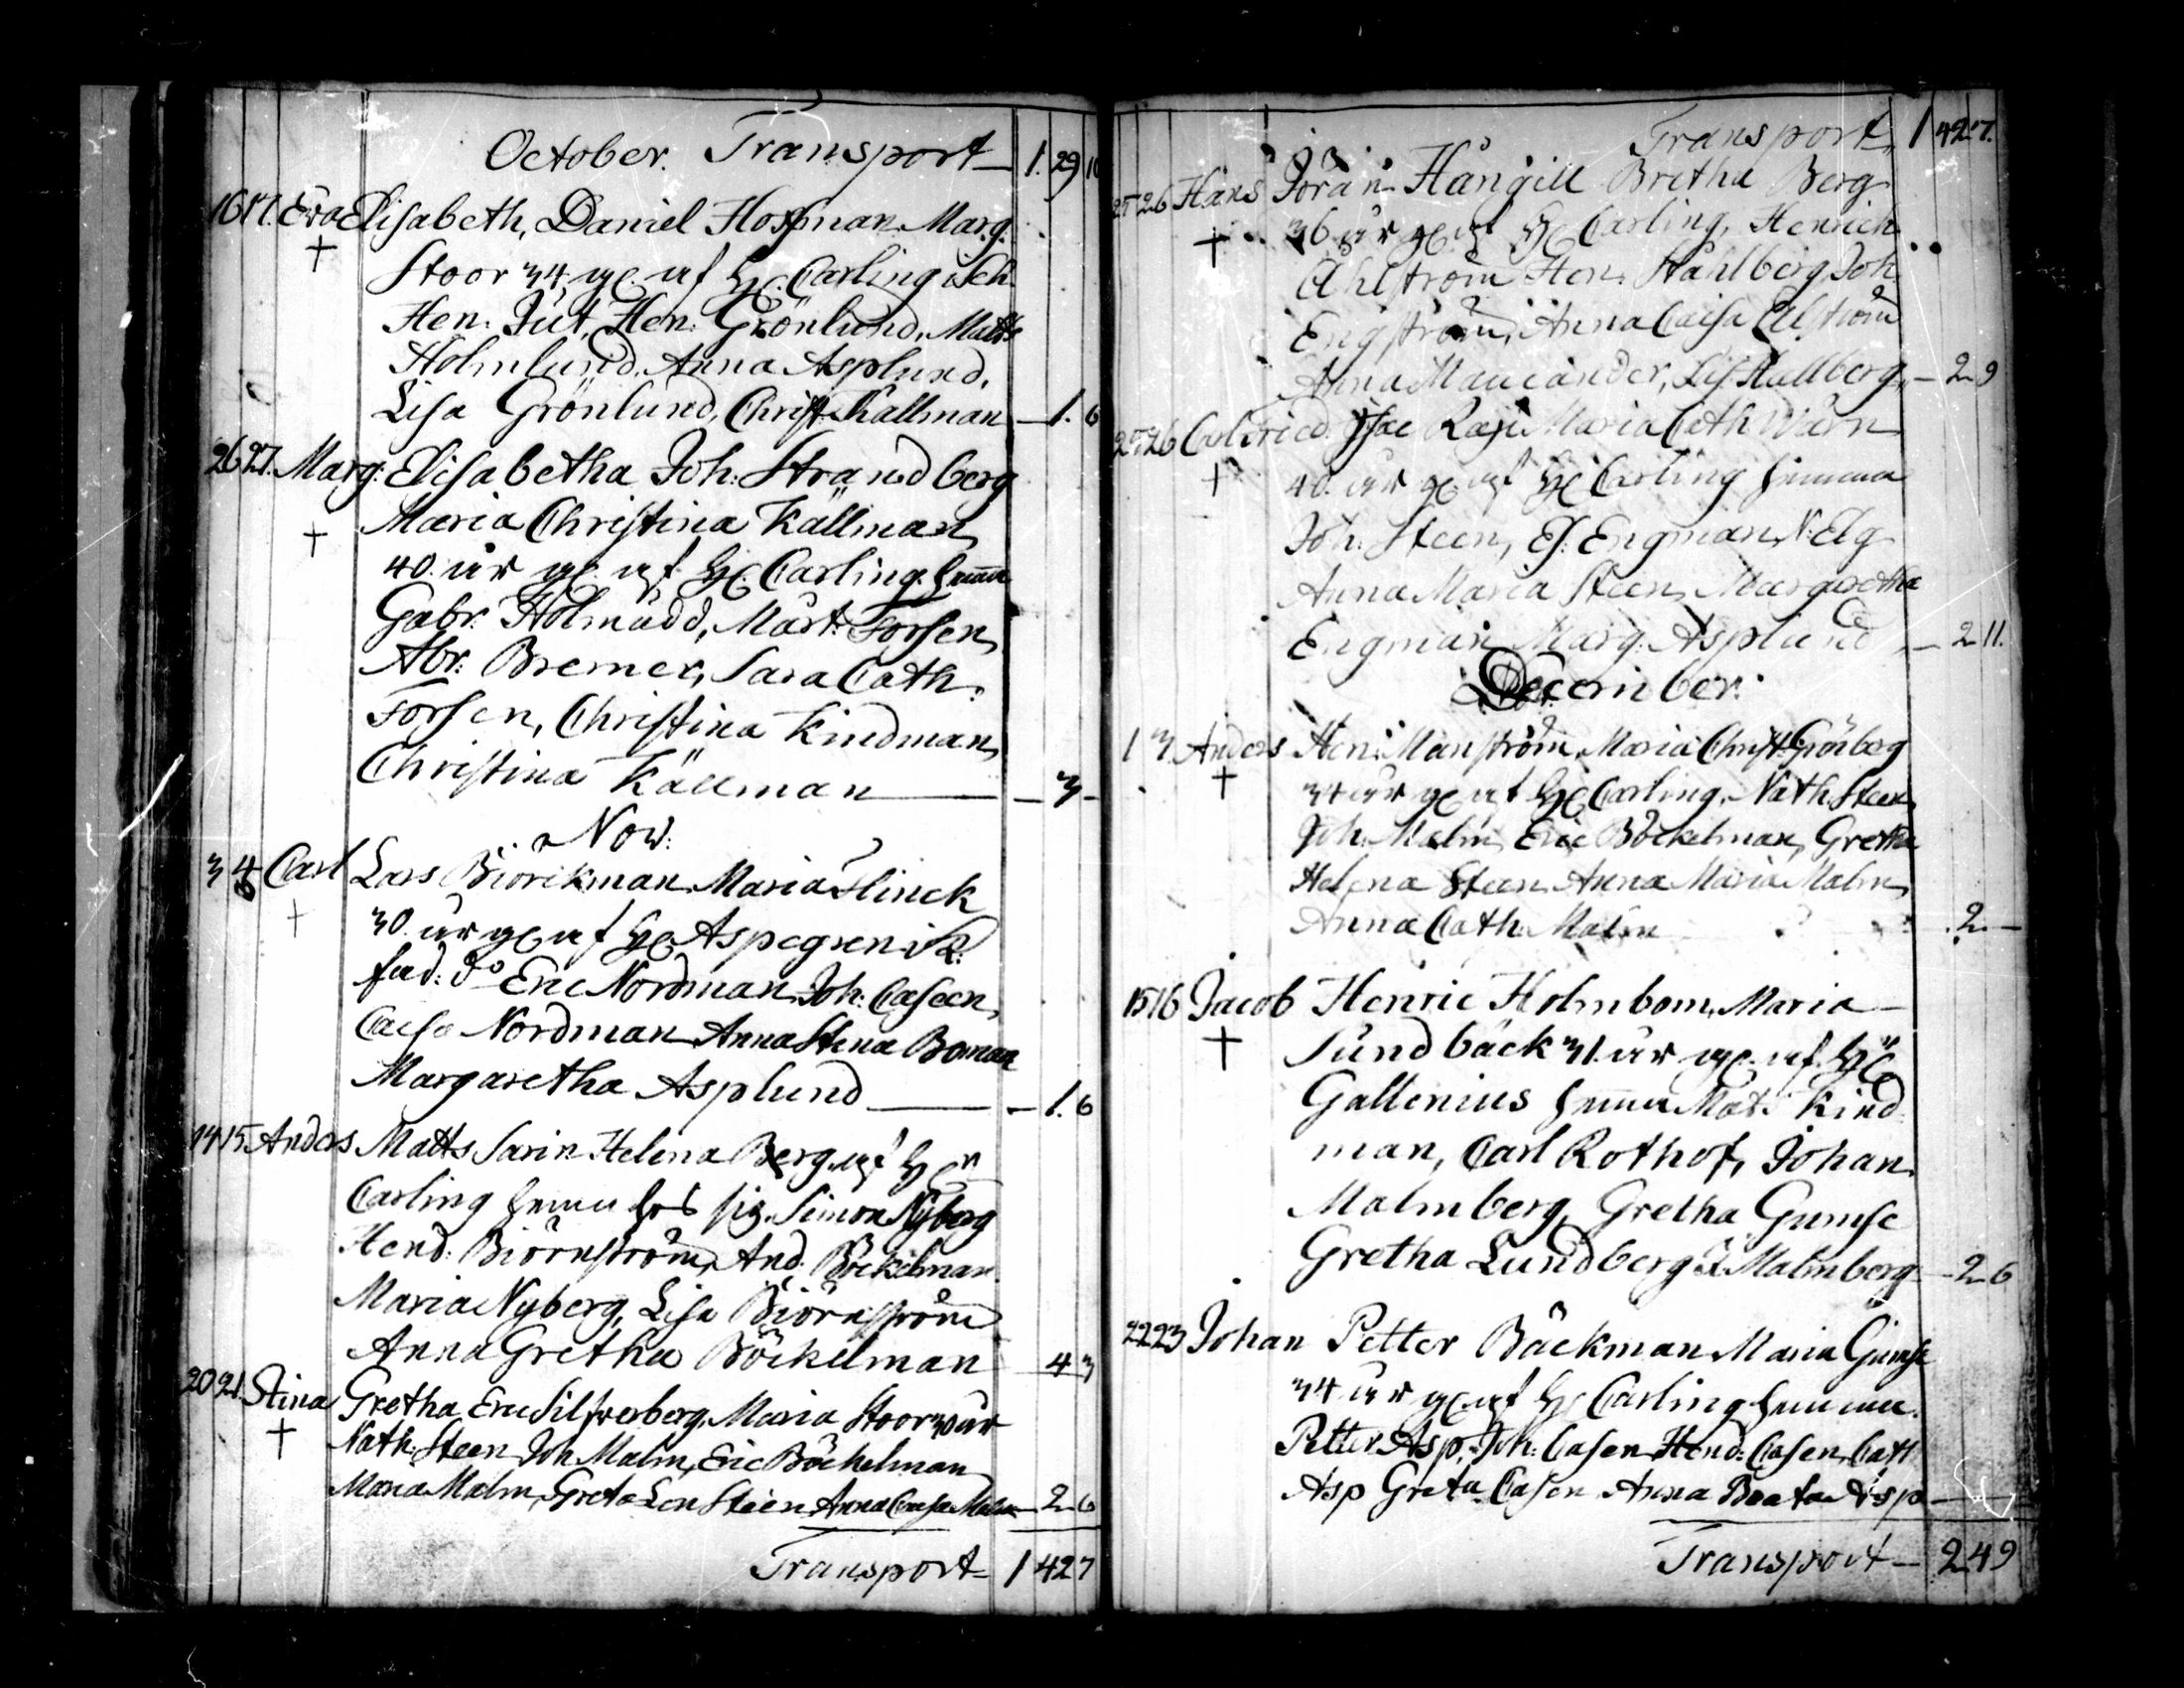 October. Transport 1. 29 10
16 17. Eva Elisabeth, Daniel Hofman Marg.
Stoor 34, af Carling Sch.
Hen. Jut, Hen: Grönlund, Matts
Holmlund, Anna Asplund,
Lisa Grönlund, Christ. Källman 1. 6
26 27. Marg: Elisabetha Joh: Strandberg
Maria Christina Källman
40. år af Carling
Gabr. Holmudd, Mårt: Forsen
Abr: Bremer, Sara Cath:
Forsen, Christina Kindman
Christina Källman 3
Nov:
3 4 Carl Lars Biörkman Maria Flinck
30. år af Aspegren i R:
fad: Do Eric Nordman Joh: Caseen
Caisa Nordman Anna Stina Boman
Margaretha Asplund 1. 6
14 15 Anders Matts Sarin Helena Berg af
Carling hos sig. Simon Nyberg
Hend: Biörnström, And. Böckelman
Maria Nyberg, Lisa Biörnström
Anna Gretha Böckelman 4 3
20 21. Stina Gretha Eric Silfverberg, Maria Stoor 30 år
Nath: Steen Joh Malm, Eric Böckelman
Maria Malm, Greta Len Steen Anna Caisa Malm 2 6
Transport 1 42 7
Transport 1 42 7.
25 26 Hans Jöran Hångill Bretha Berg
36 år af Carling, Henrich
Ahlström Hen. Ståhlberg Joh
Engström, Anna Caisa Ahlström
Anna, Lis. Hallberg 2 9
25 26 Carl Maria Cath Wärn
40. år af Carling
Joh. Steen, Es: Engman, N: Elg
Anna Maria Steen, Margaretha
Engman Marg. Asplund 2 11.
December.
1 3. Anders Hen: Månström, Maria Christ. Grönberg
34 år af Carling, Nath. Steen
Joh. Malm, Eric Böckelman, Gretha
Helena Steen Anna Maria Malm
Anna Cath. Malm 2
15 16 Jacob Henric Holmbom, Maria
Sundbäck 31. år af
Gallenius Mats Kind
man, Carl Rothof, Johan
Malmberg, Gretha Gumse
Gretha Lundberg Malmberg 2 6
22 23 Johan Petter Bäckman Maria Gumse
34 år af Carling
Petter Asp, Joh: Casen Hend: Casen, Cath
Asp Greta Casen Anna Beata Asp
Transport 2 4 9